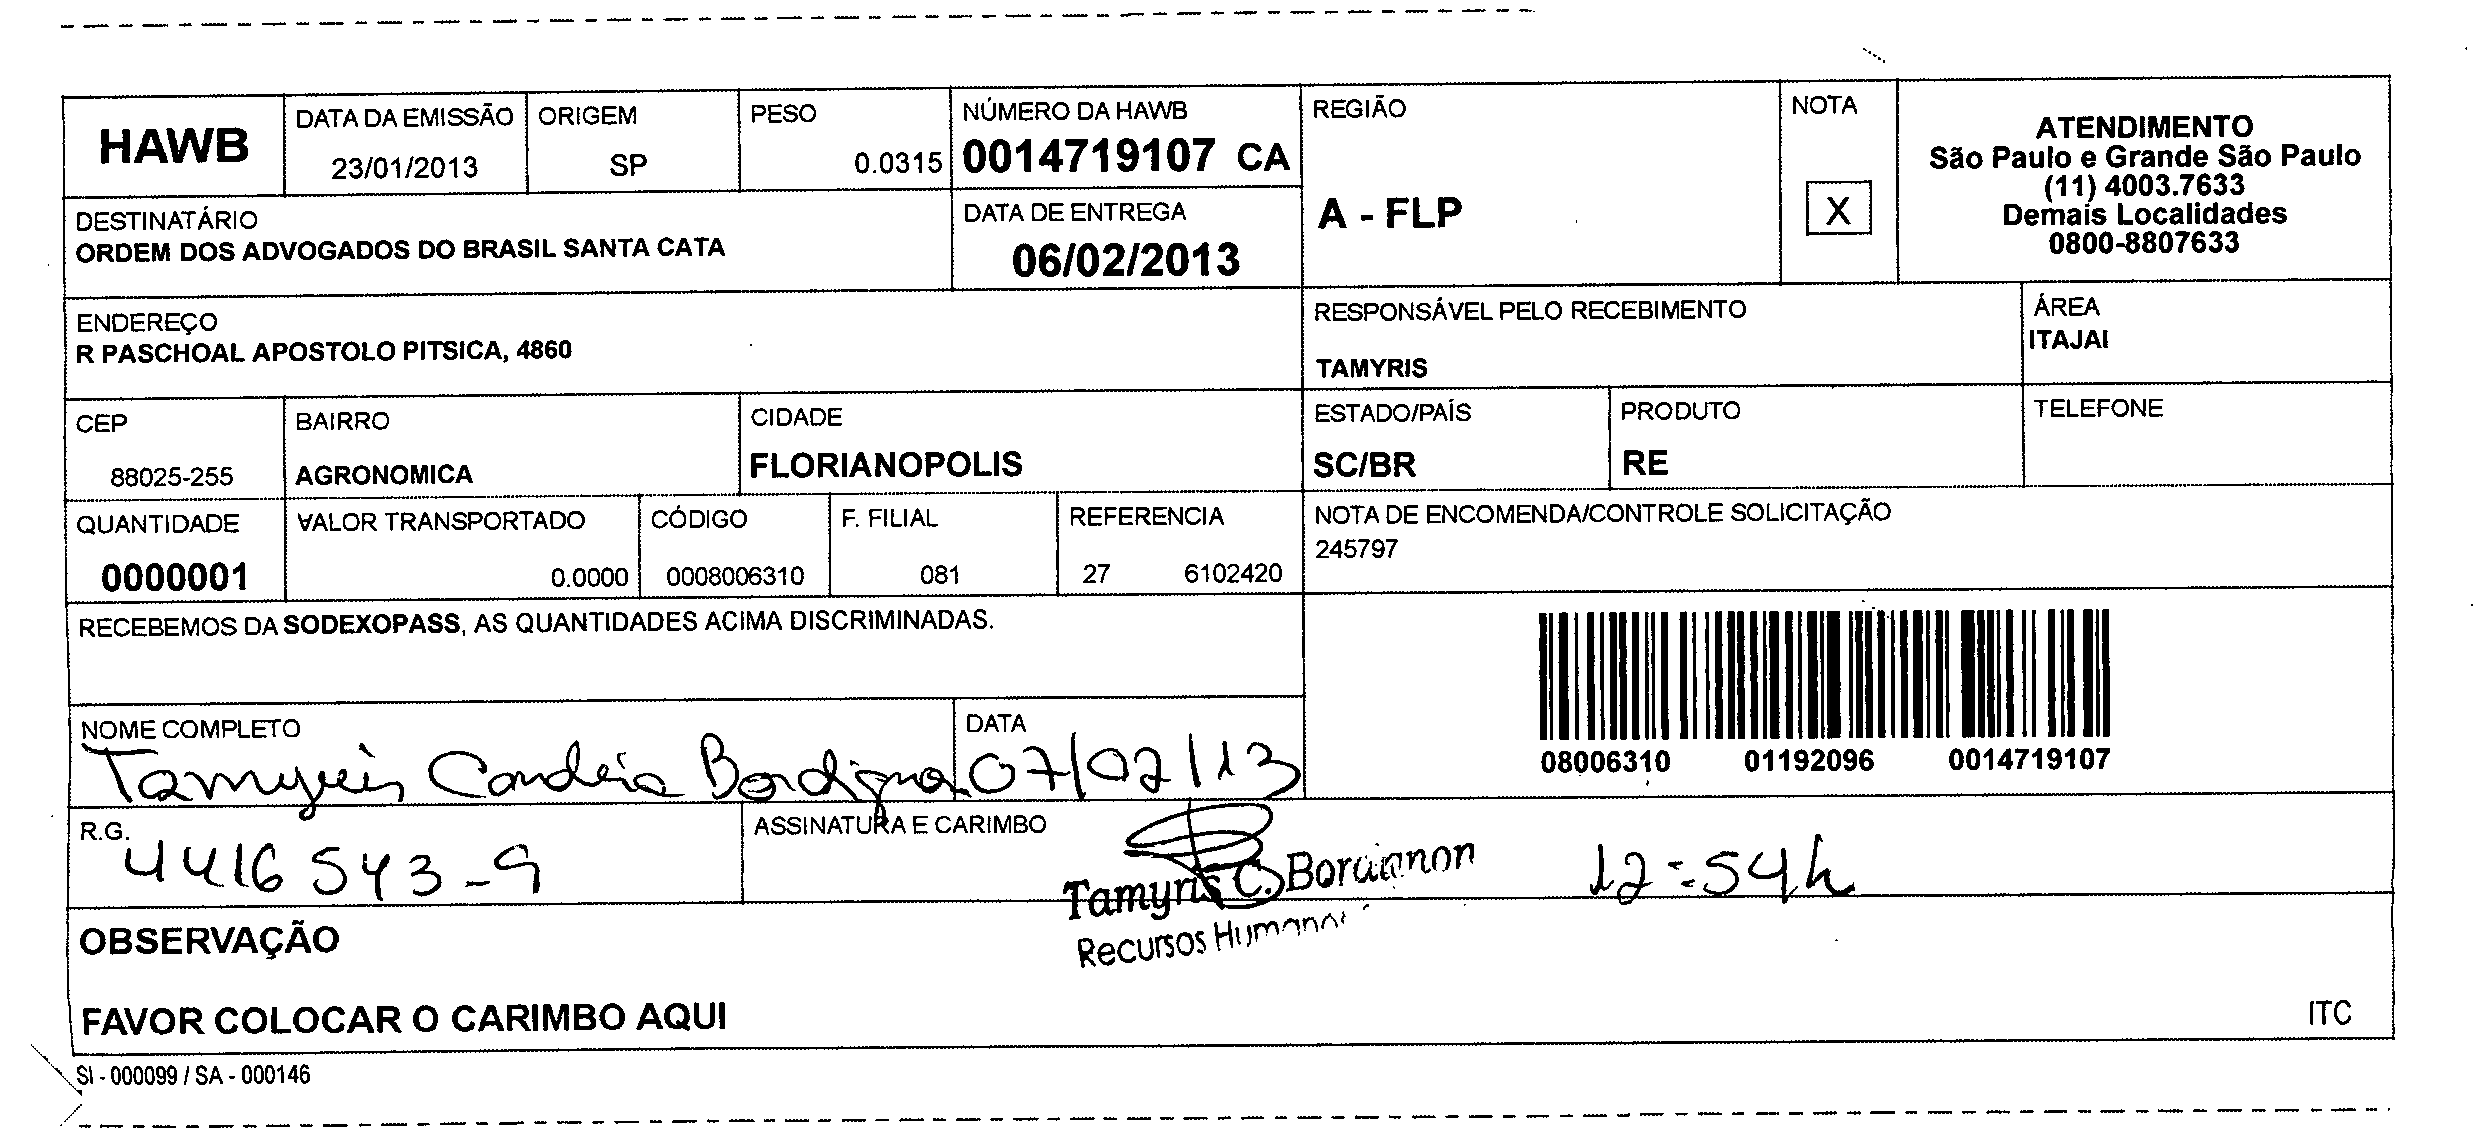 HAWB
DATA DA EMISSÃO
23/01/2013
ORIGEM
SP
PESO
0.0315
NÚMERO DA HAWB
0014719107 CA
REGIÃO
A - FLP
NOTA
X
ATENDIMENTO
São Paulo e Grande São Paulo
(11) 4003.7633
Demais Localidades
0800-8807633
DESTINATÁRIO
ORDEM DOS ADVOGADOS DO BRASIL SANTA CATA
DATA DE ENTREGA
06/02/2013
ENDEREÇO
R PASCHOAL APOSTOLO PITSICA, 4860
RESPONSÁVEL PELO RECEBIMENTO
TAMYRIS
ÁREA
ITAJAI
CEP
88025-255
BAIRRO
AGRONOMICA
CIDADE
FLORIANOPOLIS
ESTADO/PAÍS
SC/BR
PRODUTO
RE
TELEFONE
QUANTIDADE
0000001
VALOR TRANSPORTADO
0.0000
CÓDIGO
0008006310
F. FILIAL
081
REFERENCIA
27 6102420
NOTA DE ENCOMENDA/CONTROLE SOLICITAÇÃO
245797
RECEBEMOS DA SODEXOPASS, AS QUANTIDADES ACIMA DISCRIMINADAS.
08006310 01192096 0014719107
NOME COMPLETO
Tamyris Candeia Bordignon
DATA
07/02/13
R.G.
4416543-9
ASSINATURA E CARIMBO
Tamyris C. Bordignon
Recursos Humanos
12:54h
OBSERVAÇÃO
FAVOR COLOCAR O CARIMBO AQUI
ITC
SI - 000099 / SA - 000146